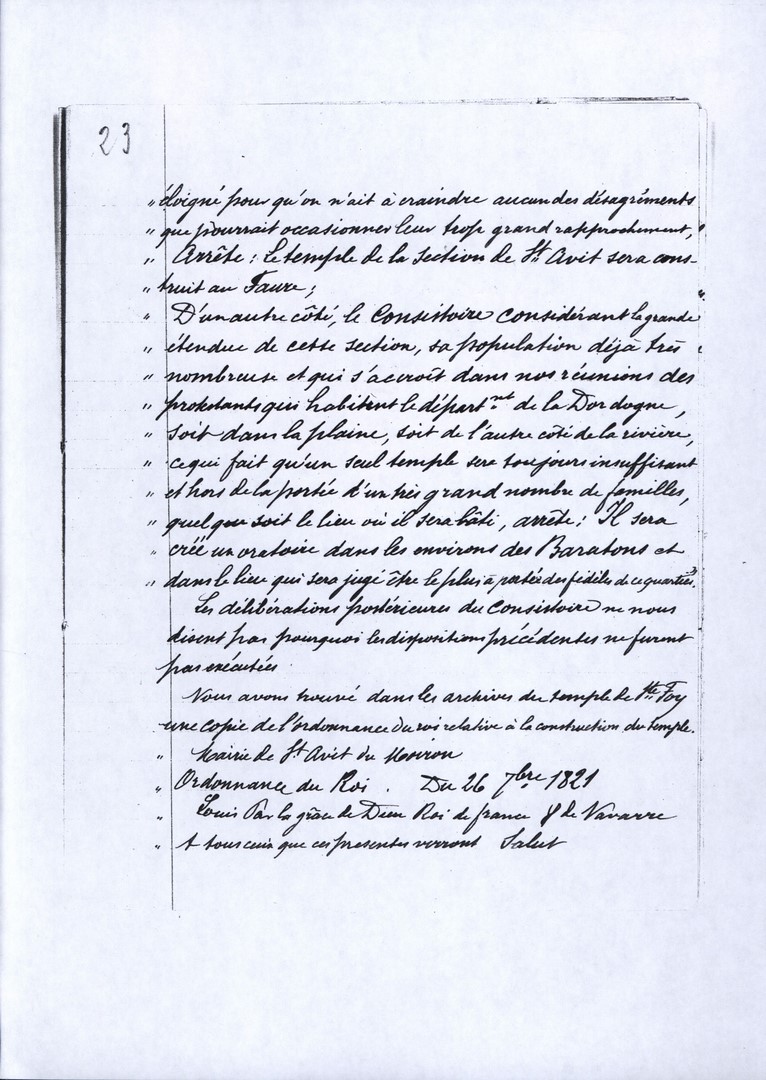 23
„ éloigné pour qu'on n'ait à craindre aucun des désagréments
„ que pourrait occasionner leur trop grand rapprochement,
„ Arrête : Le temple de la section de St Avit sera cons-
„ truit au Faure ;
„ D'un autre côté, le Consistoire considérant la grande
„ étendue de cette section, sa population déjà très
„ nombreuse et qui s'accroît dans nos réunions des
„ protestants qui habitent le départ.nt de la Dordogne,
„ soit dans la plaine, soit de l'autre côté de la rivière,
„ ce qui fait qu'un seul temple sera toujours insuffisant
„ et hors de la portée d'un très grand nombre de familles,
„ quel que soit le lieu où il sera bâti, arrête : Il sera
„ créé un oratoire dans les environs des Baratons et
„ dans le lieu qui sera jugé être le plus à portée des fidèles de ce quartier.
Les délibérations postérieures du Consistoire ne nous
disent pas pourquoi les dispositions précédentes ne furent
pas exécutées.
Nous avons trouvé dans les archives du temple de Ste Foy
une copie de l'ordonnance du roi relative à la construction du temple.
„ Mairie de St Avit du Moiron
„ Ordonnance du Roi . Du 26 7bre 1821
„ Louis Par la grâce de Dieu Roi de france & de Navarre
„ A tous ceux que ces presentes verront Salut